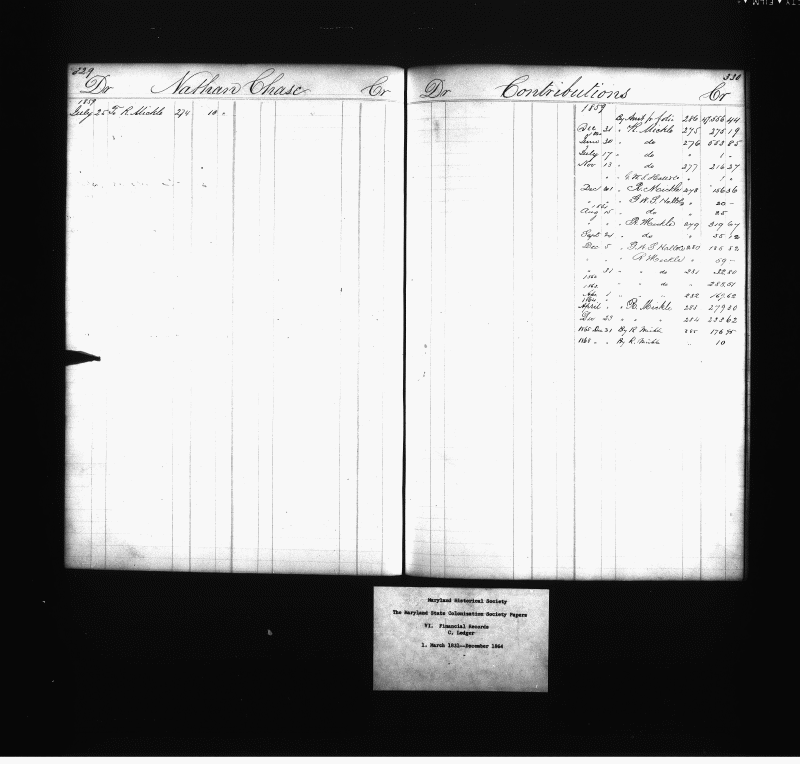 329
Dr Nathan Chase Cr
1859
July 25 To R. Mickle 274 10 "
330
Dr Contributions Cr
1859
By Amt pr folio 286 47,556 44
Dec 31 " R. Mickle 275 275 19
June 30 " do 276 553 85
July 17 " do " 1 -
Nov 13 " do 277 216 27
Dec 31 " R. Mickle 278 156 36
" " G W S Hall 20 -
Aug 15 " do " 25
" " R. Mickle 279 319 67
Sept 21 " do " 55 12
Dec 5 " 280 136 52
" " R Mickle " 59 -
" 31 " do 281 32 80
1862 " " do " 253 51
" " " 282 169 62
1864
April " " R. Mickle 283 279 20
Dec 23 " " " 284 222 62
1865 Dec 31 By R Mickle 285 176 95
" " By R. Mickle " 10
Maryland Historical Society
The Maryland State Colonization Society Papers
VI. Financial Records
C. Ledger
1. March 1831--December 1864